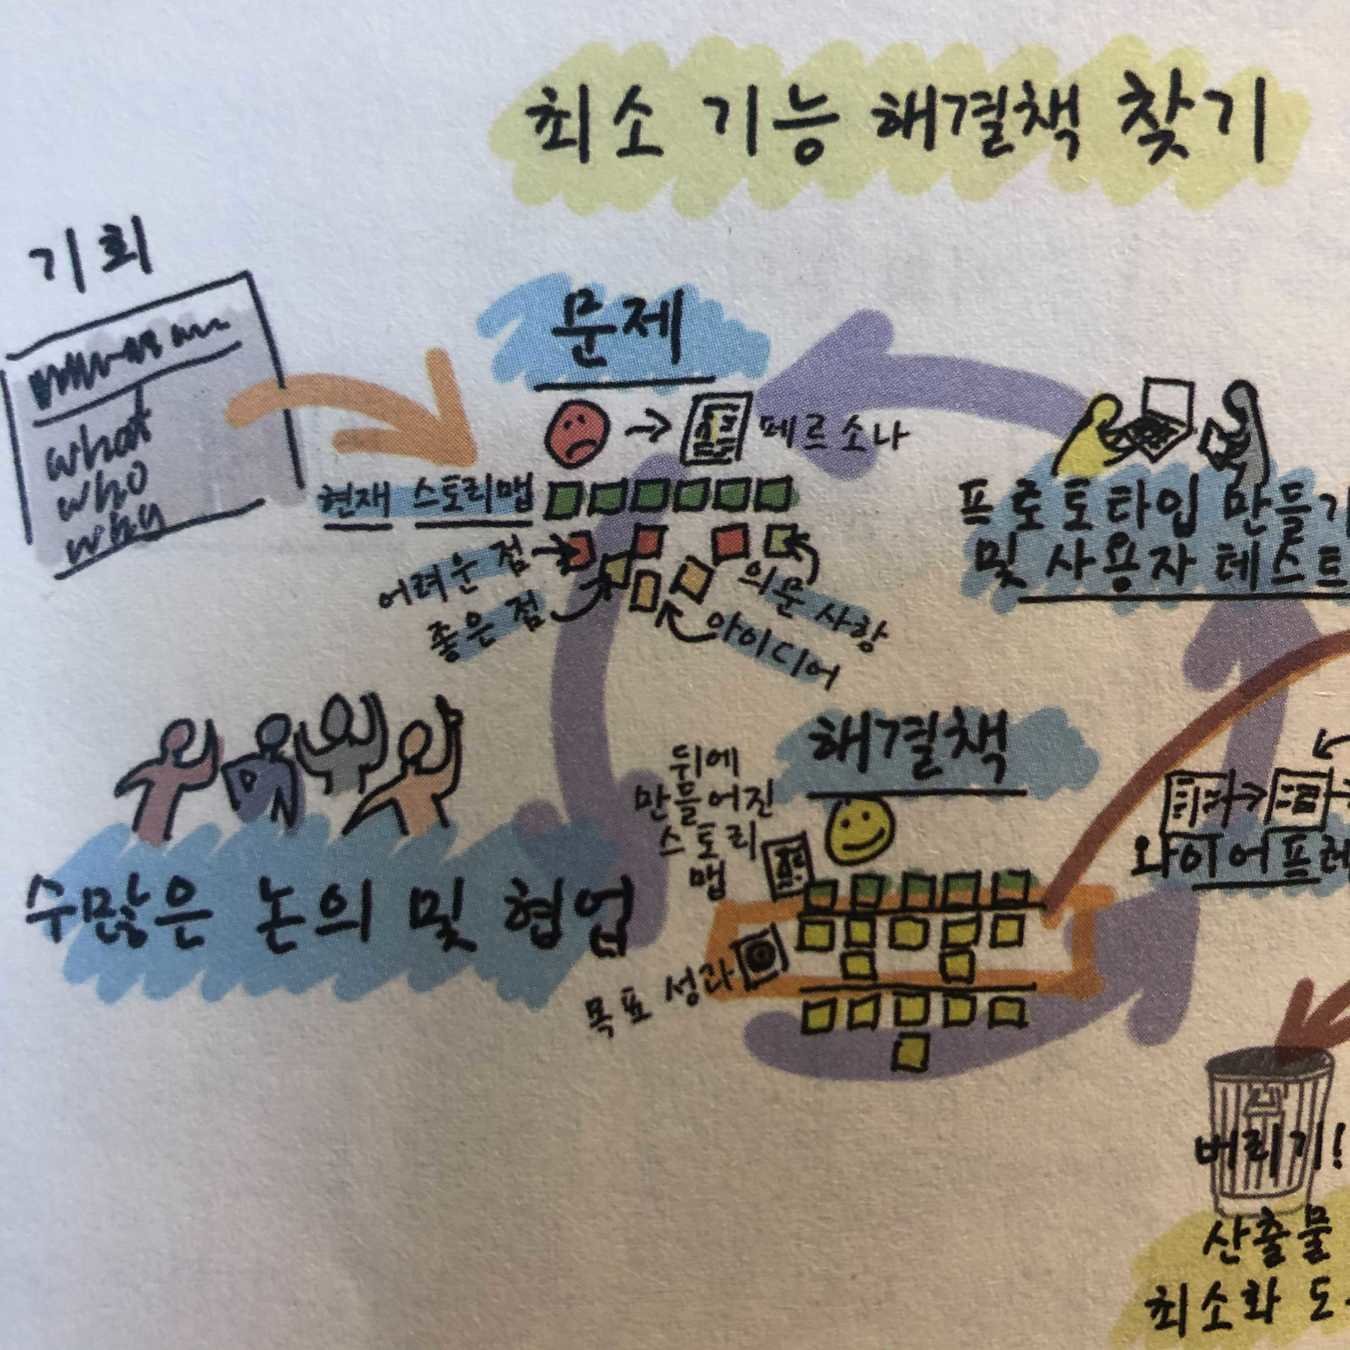 최소 기능 해결책 찾기
기회
what
who
why
문제
페르소나
현재 스토리맵
어려운 점
좋은 점
의문 사항
아이디어
프로토타입 만들기
및 사용자 테스트
수많은 논의 및 협업
해결책
뒤에
만들어진
스토리
맵
목표 성과
와이어프레
버리기!
산출물
최소화 도